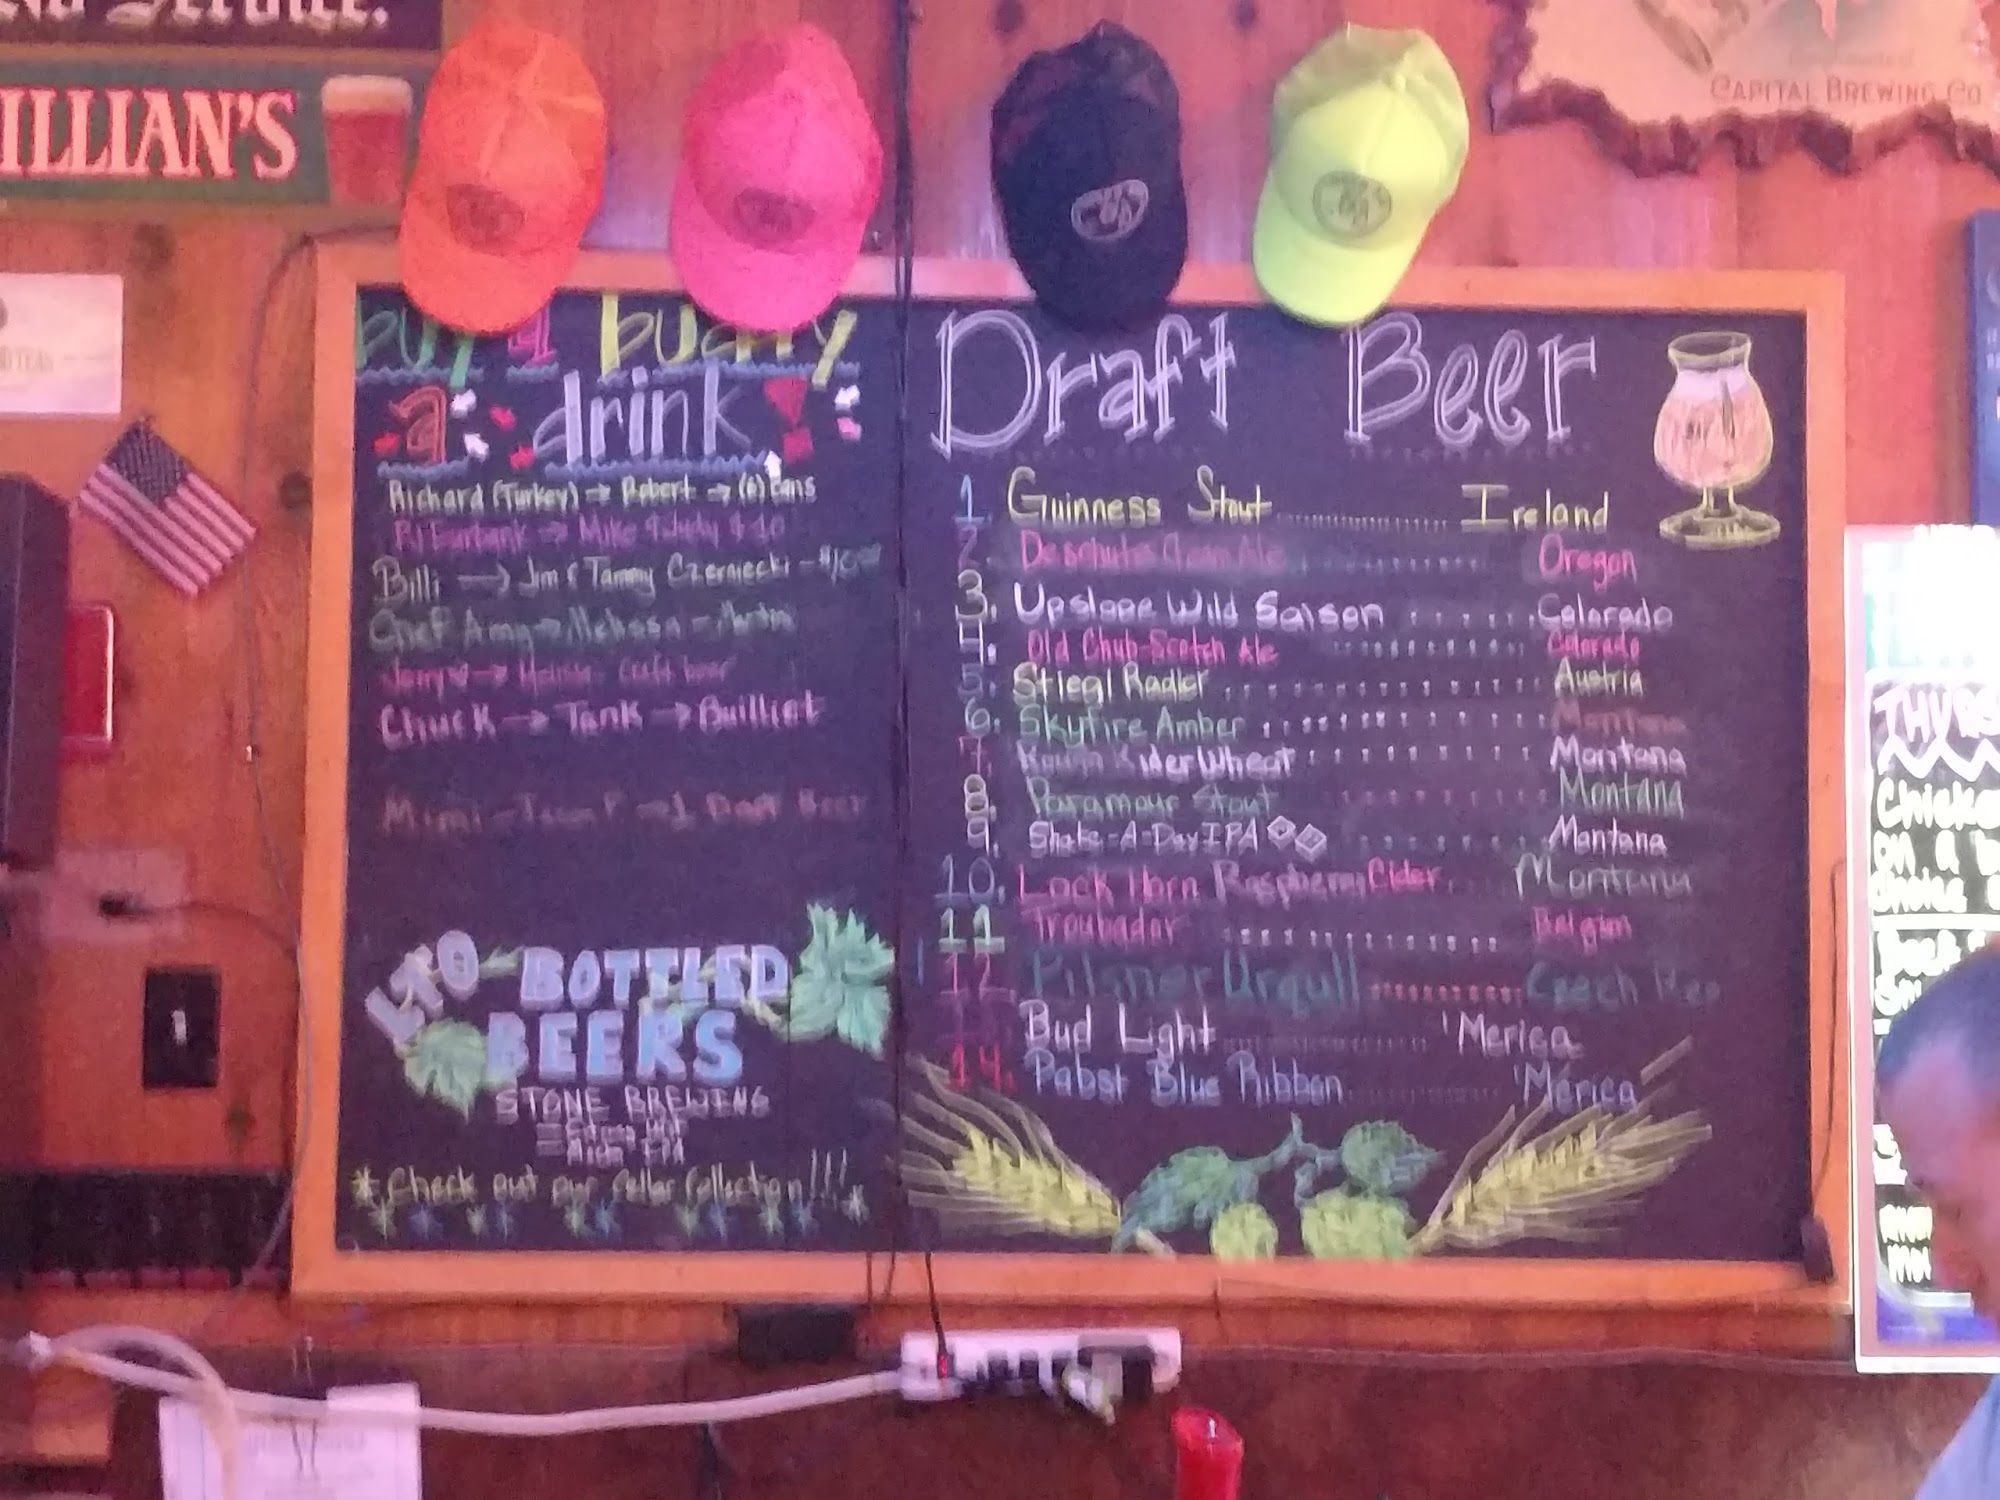 No Service.
ILLIAN'S
CAPITAL BREWING CO
buy a buddy
a drink!
Richard (Turkey) → Robert → (6) Cans
→ Mike & Judy $10
Billi → Jim & Tammy Czerniecki - $10
Chef Amy → Melissa →
→ craft beer
Chuck → Tank → Builliet
Mimi → → 1 Draft Beer
LTO BOTTLED
BEERS
STONE BREWING
IPA
* Check out our Cellar Collection!!! *
Draft Beer
1. Guinness Stout Ireland
2. Deschutes Cream Ale Oregon
3. Upslope Wild Saison Colorado
4. Old Chub-Scotch Ale Colorado
5. Stiegl Radler Austria
6. Skyfire Amber Montana
7. Wheat Montana
8. Paramour Stout Montana
9. Shake-A-Day IPA Montana
10. Lock Horn Raspberry Cider Montana
11 Troubador Belgim
12. Pilsner Urqull Czech Rep
Bud Light 'Merica
14. Pabst Blue Ribbon 'Merica
THURS
Chicke
on a b
choice